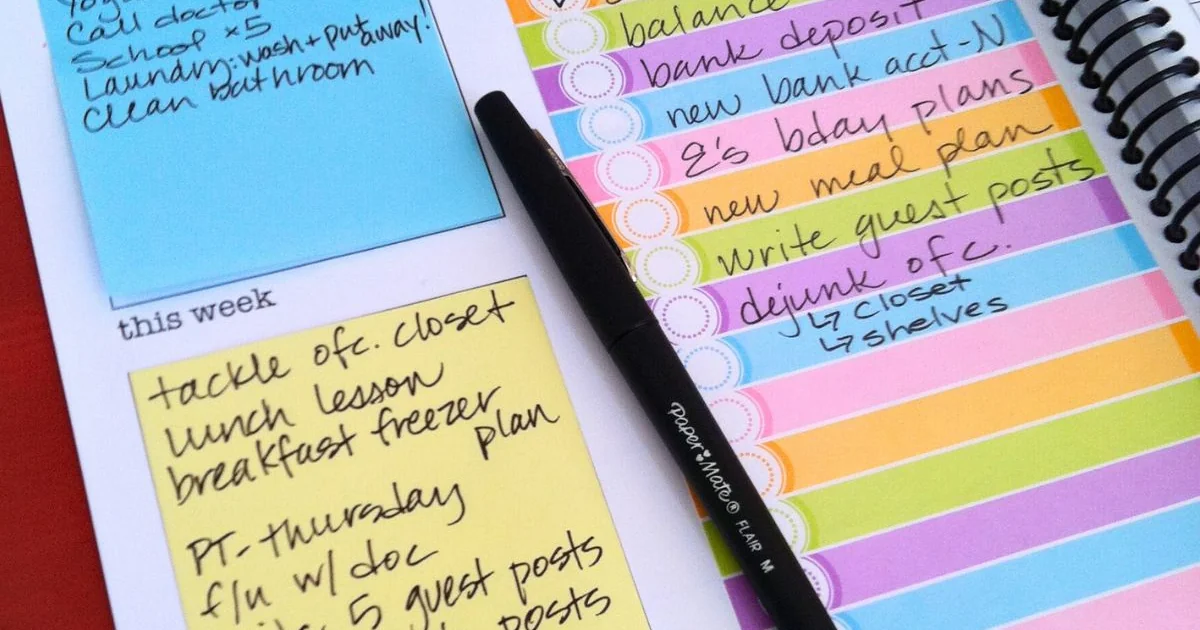 Call doctor
School x5
Laundry: wash + put away!
Clean bathroom
this week
tackle ofc. closet
lunch lesson
breakfast freezer
plan
PT - Thursday
f/u w/ doc
5 guest posts
posts
balance
bank deposit
new bank acct - N
E's bday plans
new meal plan
write guest posts
dejunk ofc.
↳ closet
↳ shelves
Paper Mate® FLAIR M